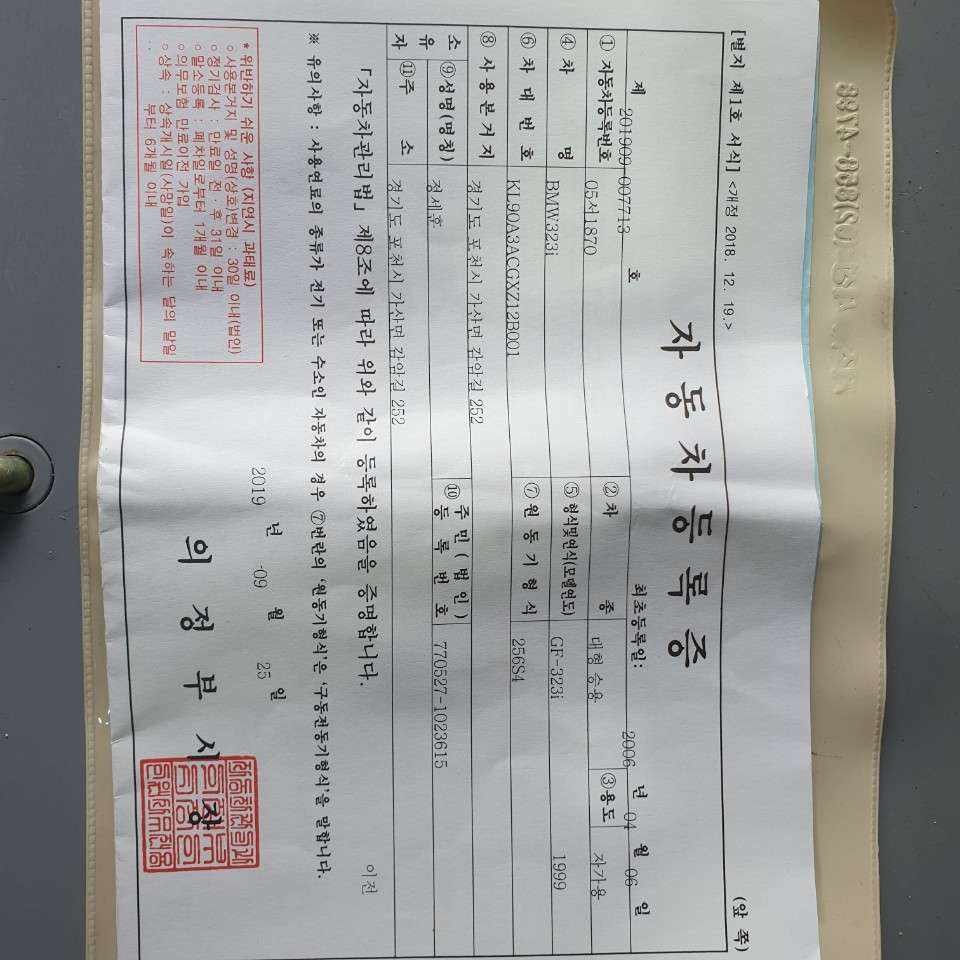 [별지 제1호 서식] <개정 2018. 12. 19.>
(앞 쪽)
자 동 차 등 록 증
제 201909-007713 호
최초등록일: 2006 년 04 월 06 일
① 자동차등록번호 05서1870 ② 차 종 대형 승용 ③용도 자가용
④ 차 명 BMW323i ⑤ 형식및연식(모델연도) GF-323i 1999
⑥ 차 대 번 호 KL90A3ACGXZ12B001 ⑦ 원 동 기 형 식 256S4
⑧ 사 용 본 거 지 경기도 포천시 가산면 감암길 252
소 유 자
⑨성명(명칭) 정세훈 ⑩ 주 민 ( 법 인 ) 등 록 번 호 770527-1023615
⑪주 소 경기도 포천시 가산면 감암길 252
이전
「자동차관리법」 제8조에 따라 위와 같이 등록하였음을 증명합니다.
※ 유의사항 : 사용연료의 종류가 전기 또는 수소인 자동차의 경우 ⑦번란의 '원동기형식'은 '구동전동기형식'을 말합니다.
* 위반하기 쉬운 사항 (지연시 과태료)
○ 사용본거지 및 성명(상호)변경 : 30일 이내(법인)
○ 정기검사 : 만료일 전·후 31일 이내
○ 말소등록 : 폐차일로부터 1개월 이내
○ 의무보험 만료이전 가입
○ 상속 : 상속개시일(사망일)이 속하는 달의 말일
부터 6개월 이내
2019 년 -09 월 25 일
의 정 부 시 장